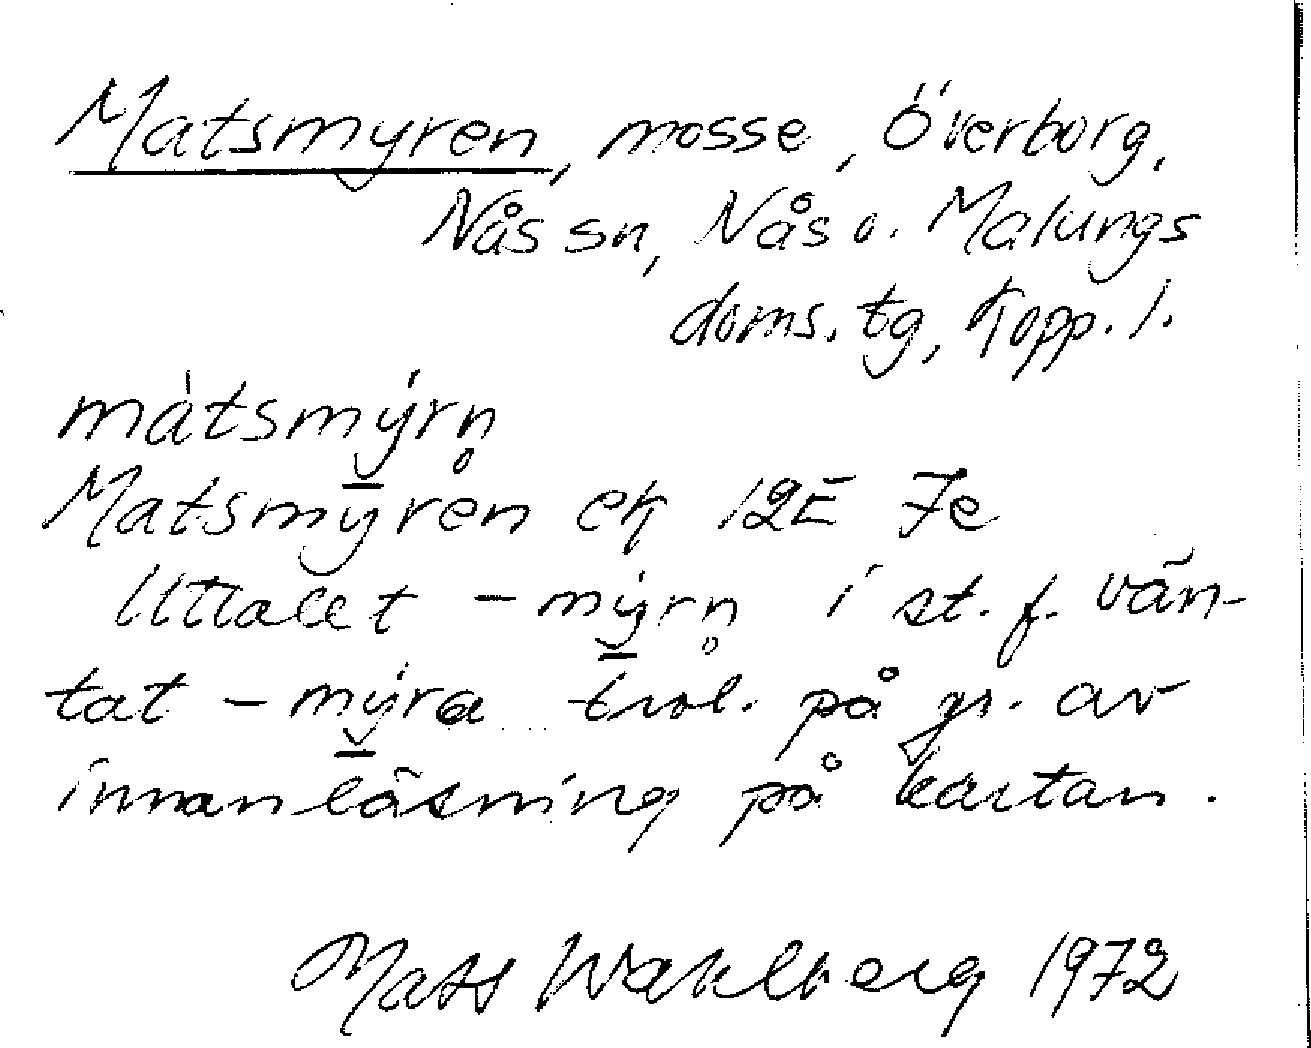 Matsmyren, mosse, Överborg,
Nås sn, Nås o. Malungs
doms. tg, Kopp. l.
mátsmý̱rn̥
Matsmyren ek 12E 7e
Uttalet – mý̱rn̥ i st. f. vän-
tat – mý̱ra trol. på gr. av
innanläsning på kartan.
Mats Wahlberg 1972